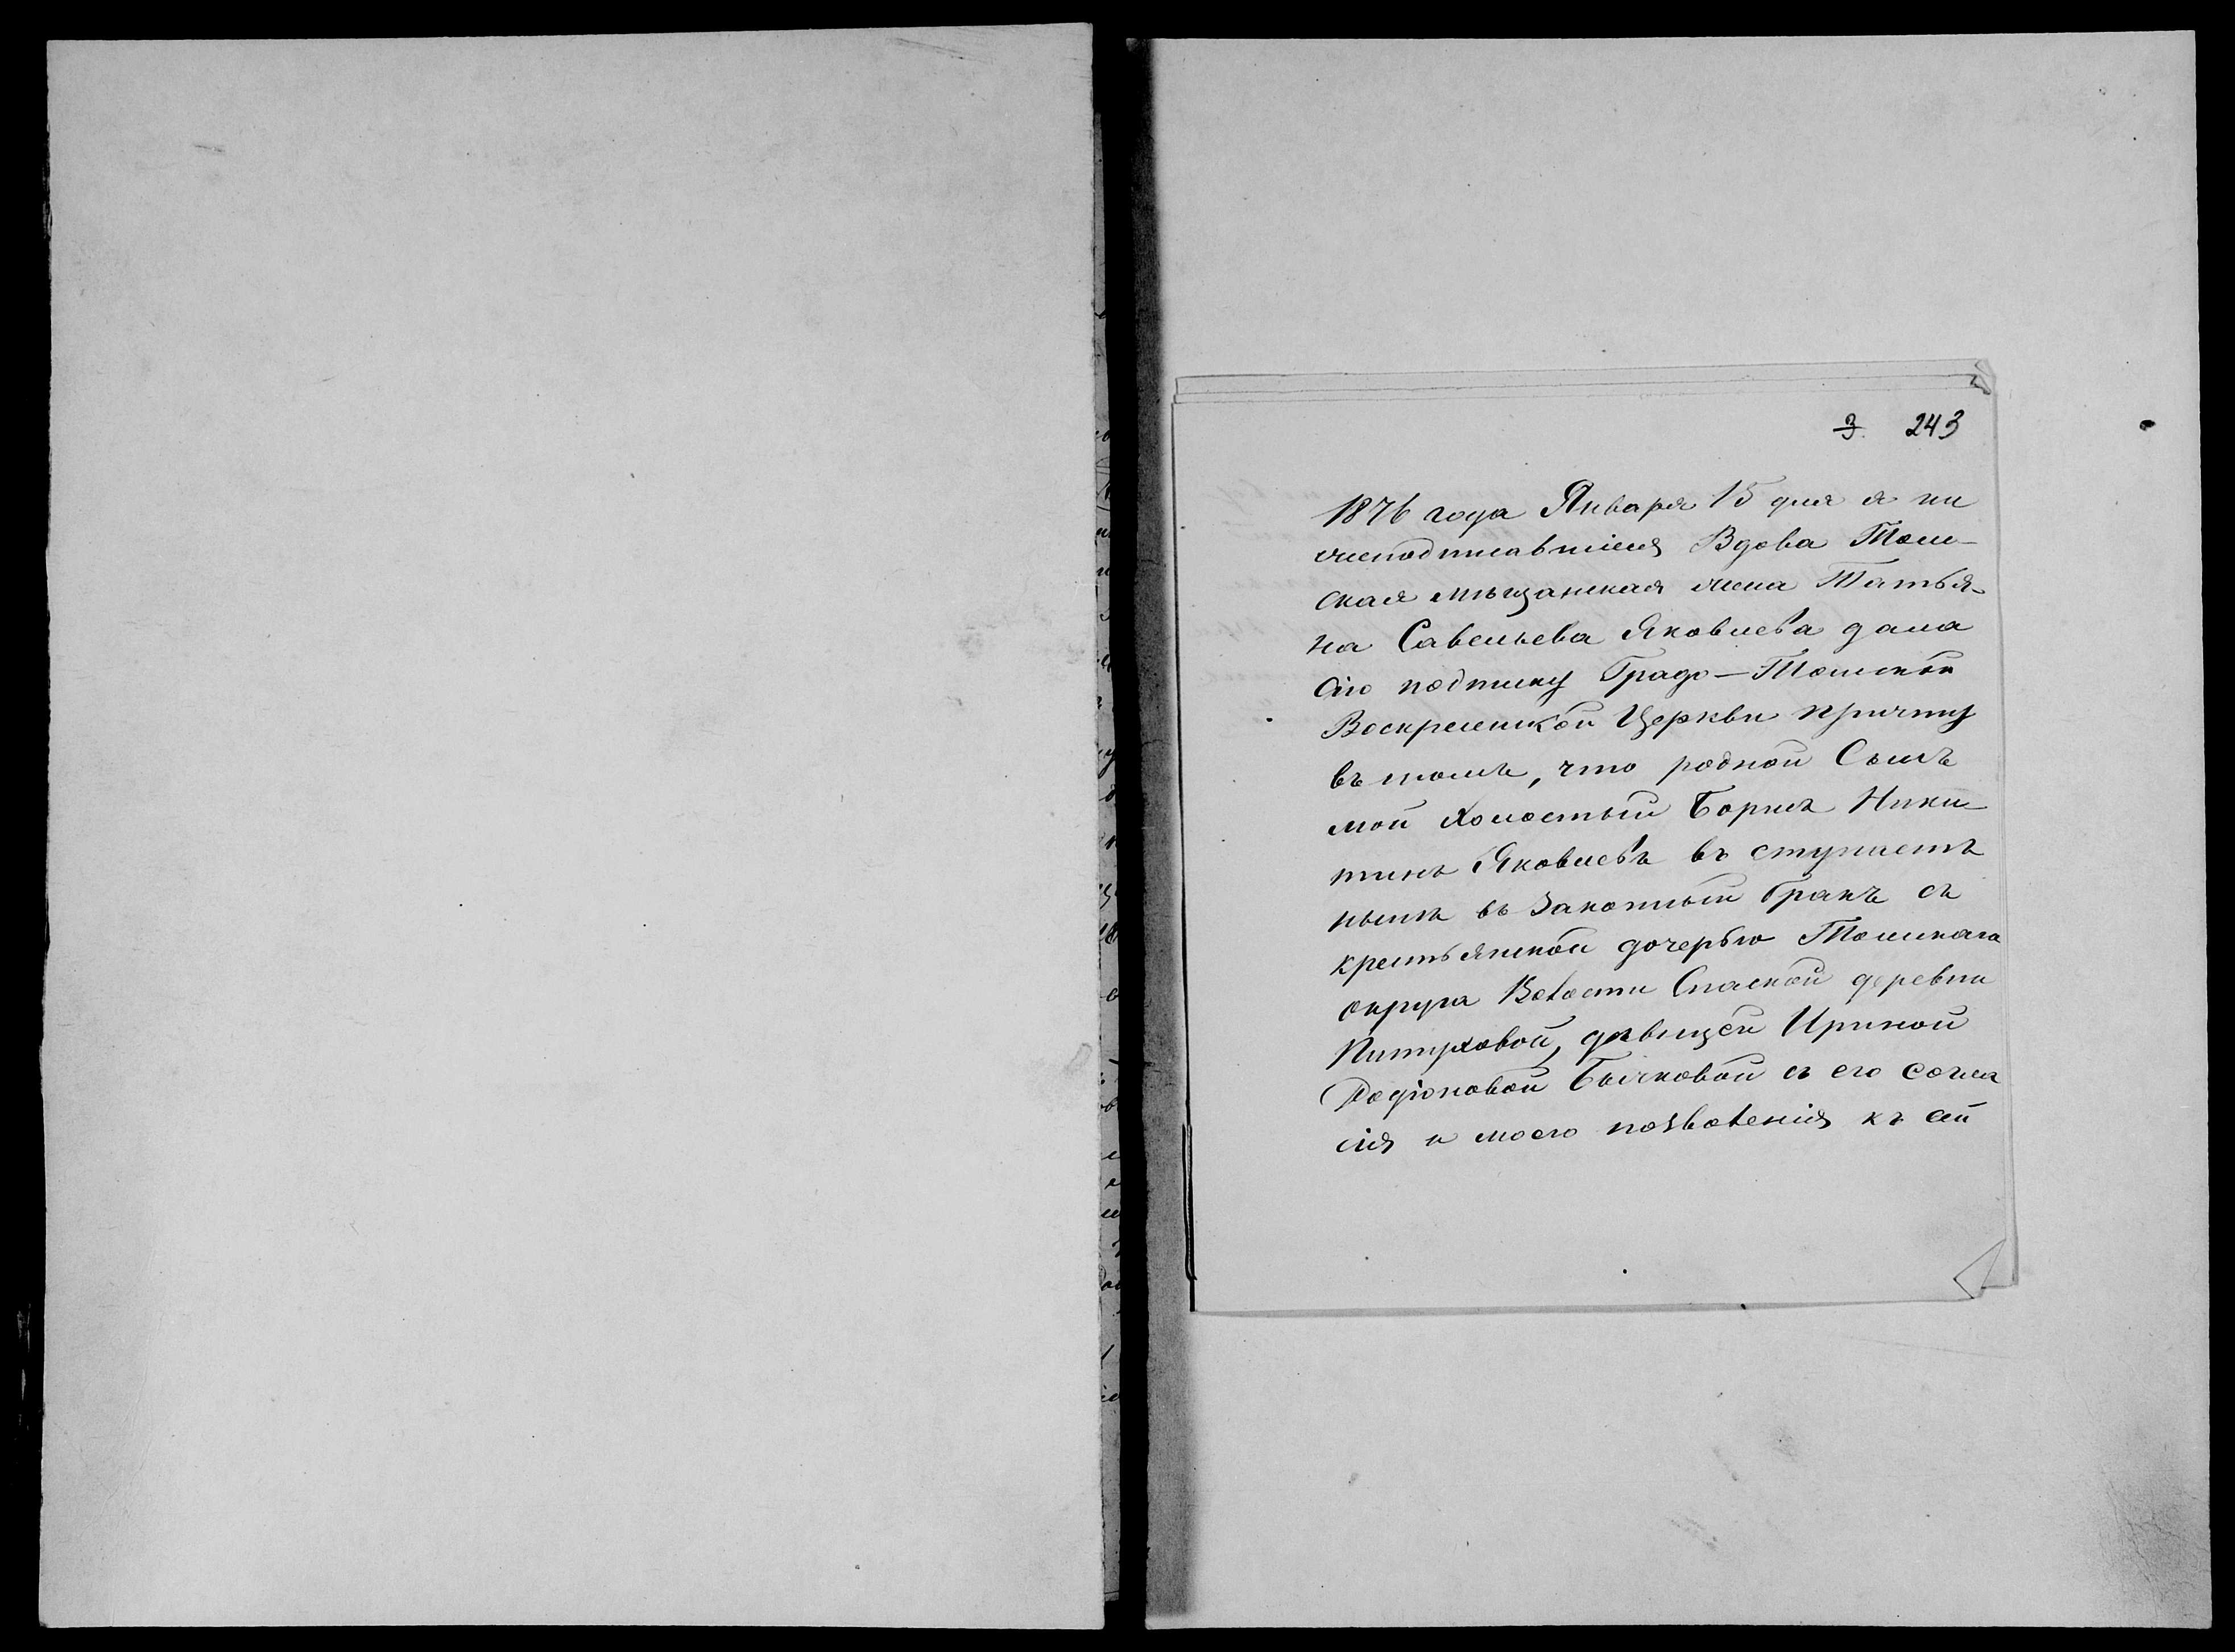 3. 243
1876 года Января 15 дня я ни
жеподписавшіися Вдова Том-
ская мѣщанская жена Татья-
на Савельева Яковлева дала
сію подписку Градо-Томской
Воскресенской Церкви причту
въ томъ, что родной Сынъ
мой холостый Борисъ Ники-
тинъ Яковлевъ въ ступаетъ
нынѣ въ Законный бракъ съ
крестьянской дочерью Томскаго
округа Волости Спаской деревни
Питуховой, дѣвицей Ириной
Родіоновой Бычковой съ его согла
сія и моего позволенія къ сей